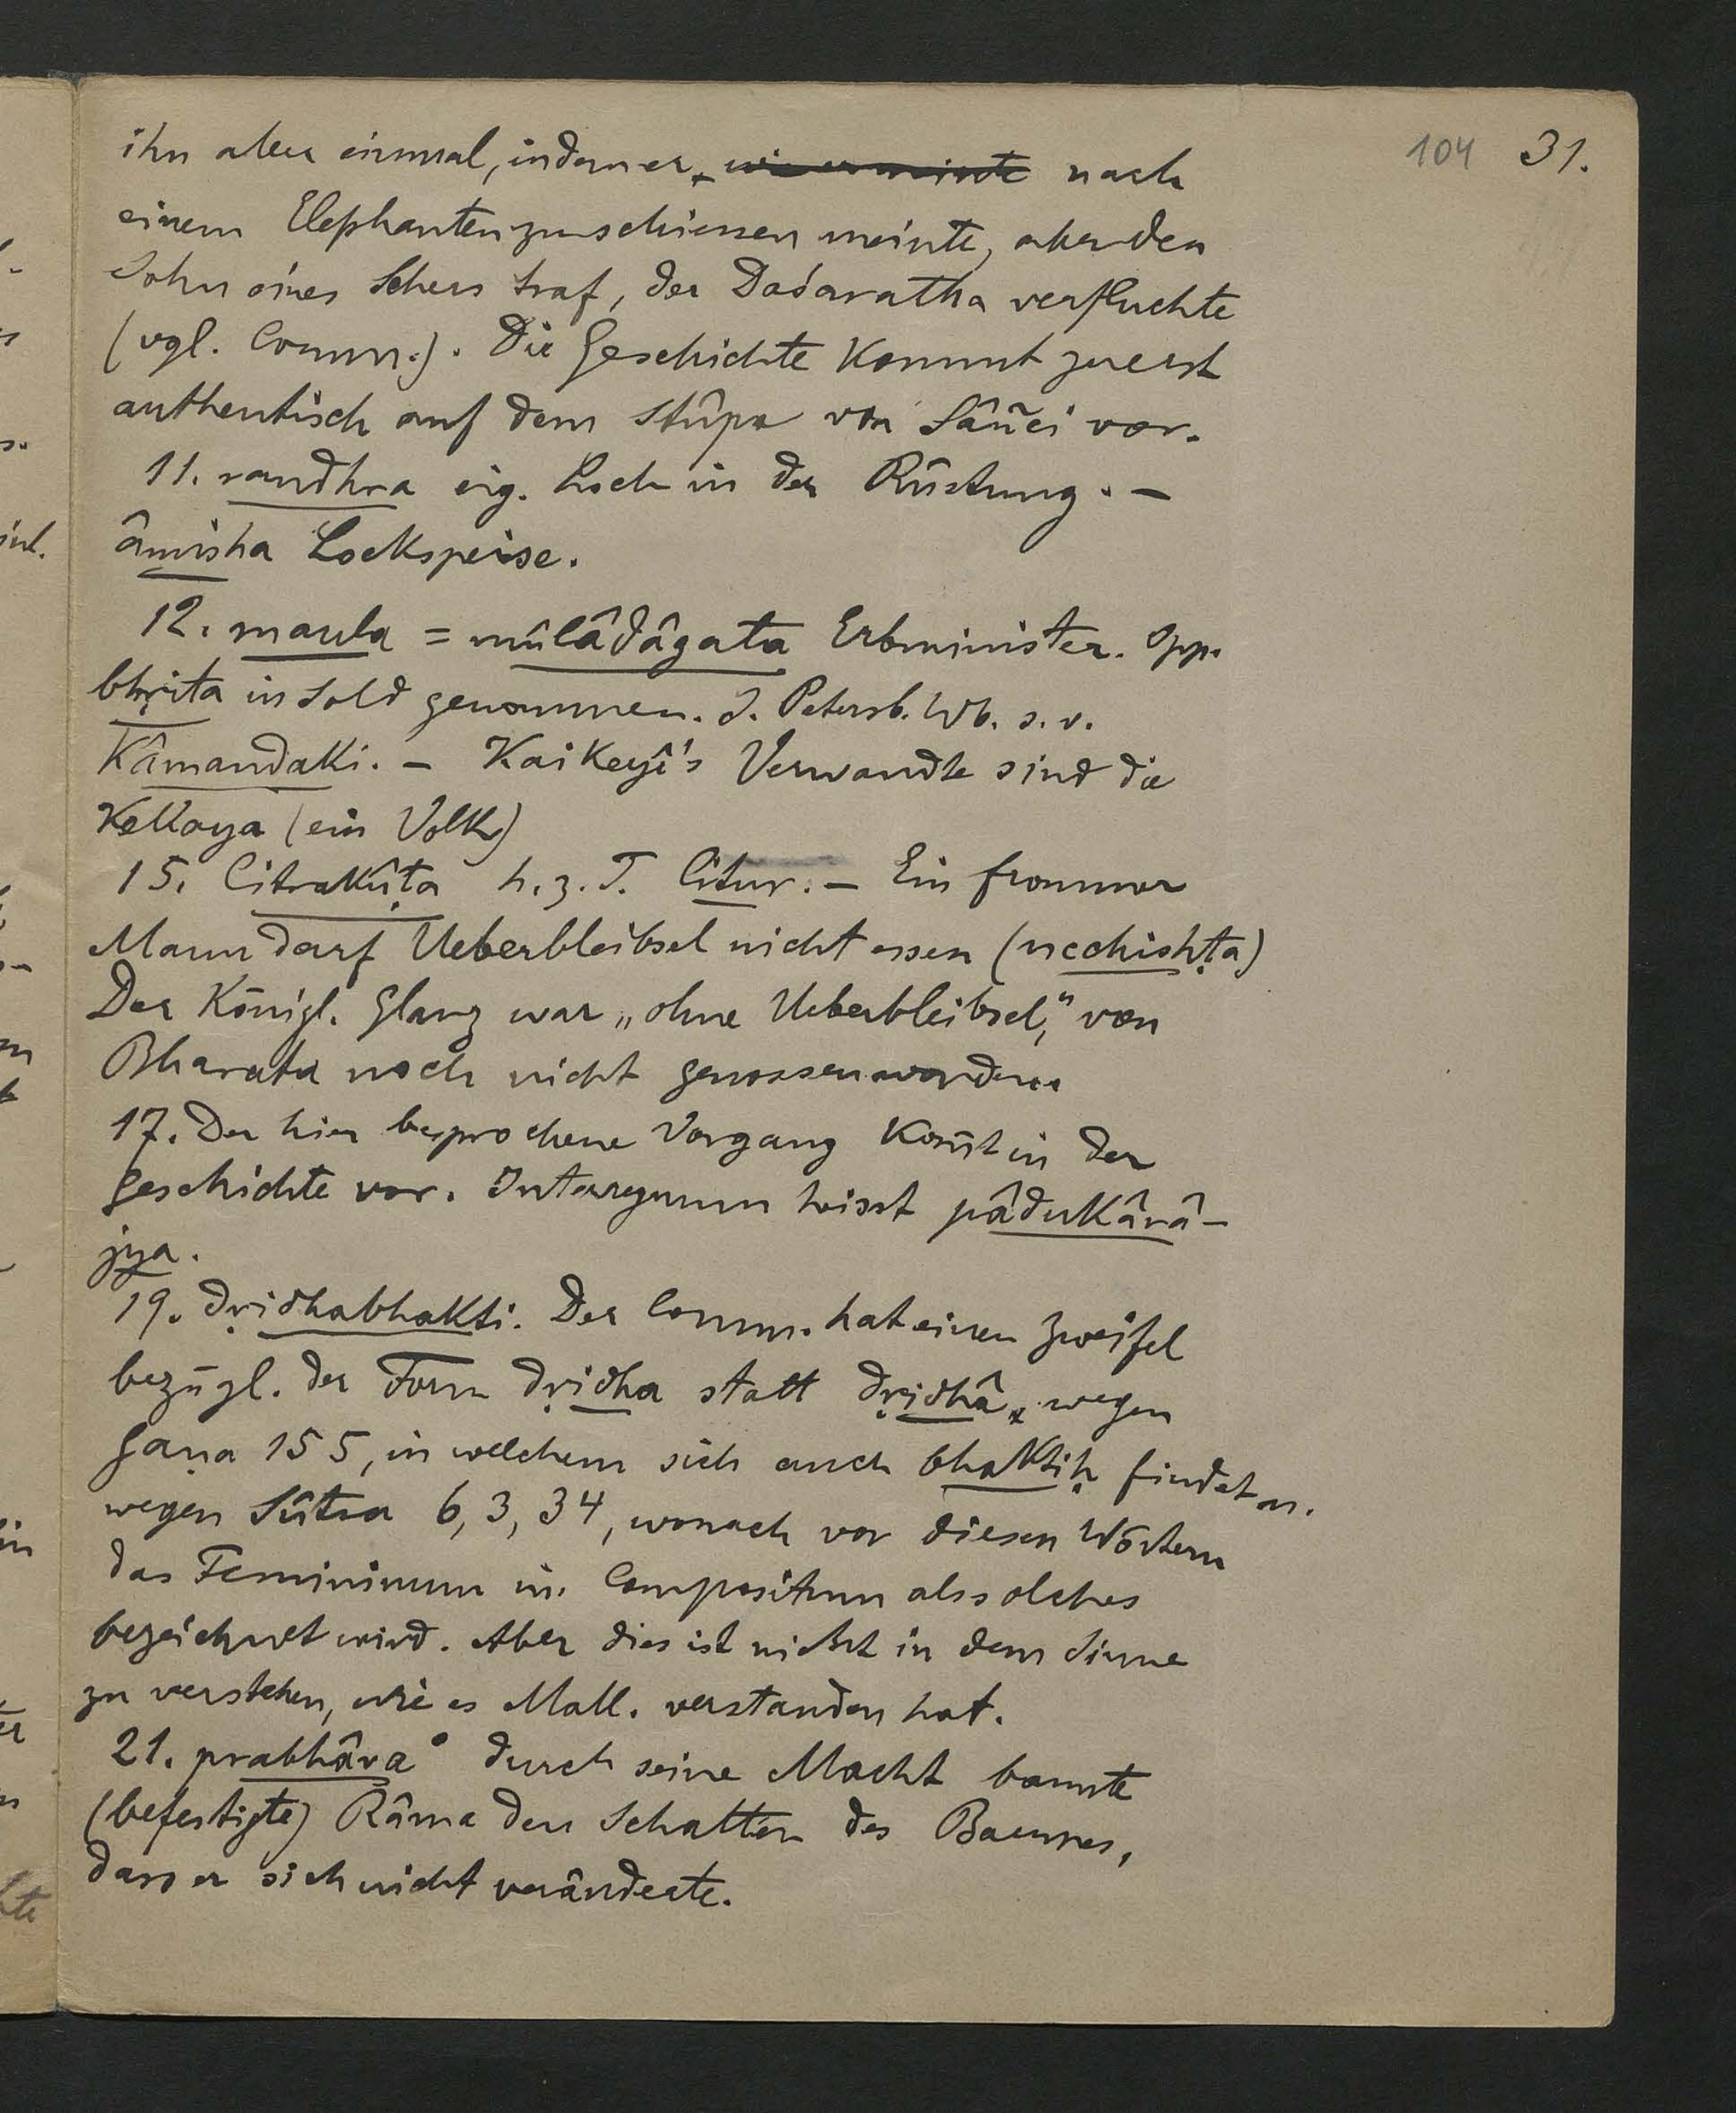 104 31.
ihn aber einmal, indem er, wie er meinte nach
einem Elephanten zu schiessen meinte, aber den
Sohn eines Sehers traf, der Daśaratha verfluchte
(vgl. Comm.). Die Geschichte kommt zuerst
authentisch auf dem Stûpa von Sâñci vor.
11. randhra eig. Loch in der Rüstung. –
âmisha Lockspeise.
12. maula = mûlâdâgata Erbminister. Opp.
bhṛita in Sold genommen. S. Petersb. Wb. s. v.
Kâmandaki. – Kaikeyî's Verwandte sind die
Kekaya (ein Volk)
15. Citrakûṭa h. z. T. Citur. – Ein frommer
Mann darf Ueberbleibsel nicht essen (ucchishṭa)
Der Königl. Glanz war „ohne Ueberbleibsel," von
Bharata noch nicht genossen worden.
17. Der hier besprochene Vorgang kom̅t in der
Geschichte vor. Interregnum heisst pâdukârâ-
jya.
19. dṛidhabhakti. Der Comm. hat einen Zweifel
bezügl. der Form dṛidha statt dṛidhâ, wegen
Gaṇa 155, in welchem sich auch bhaktiḥ findet u.
wegen Sûtra 6, 3, 34, wonach vor diesen Wörtern
das Femininum im Compositum als solches
bezeichnet wird. Aber dies ist nicht in dem Sinne
zu verstehen, wie es Mall. verstanden hat.
21. prabhâva° durch seine Macht bannte
(befestigte) Râma den Schatten des Baumes,
dass er sich nicht veränderte.